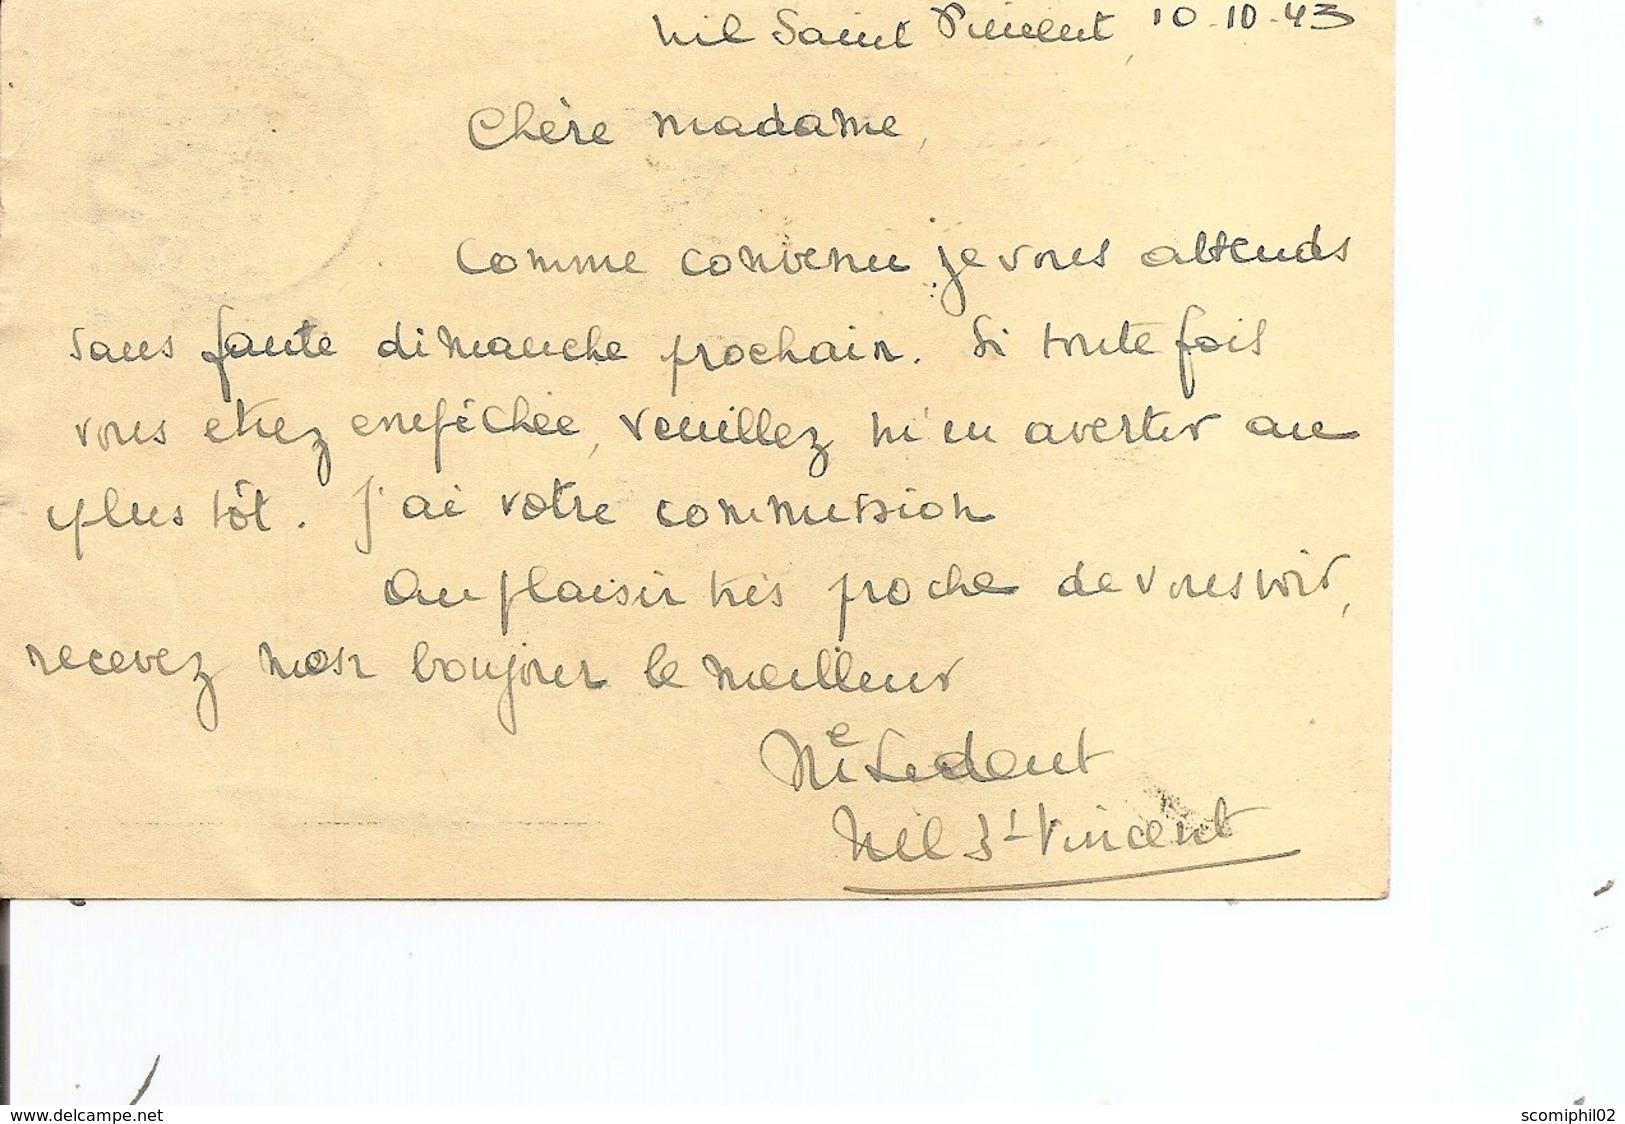 Nil Saint Vincent, 10-10-43
Chère madame,
Comme convenu je vous attends
sans faute dimanche prochain. Si toute fois
vous etiez empêchée, veuillez m'en avertir au
plus tôt. J'ai votre commission
Au plaisir très proche de vous voir,
recevez mon bonjour le meilleur
Me Ledent
Nil St Vincent
www.delcampe.net
scomiphil02